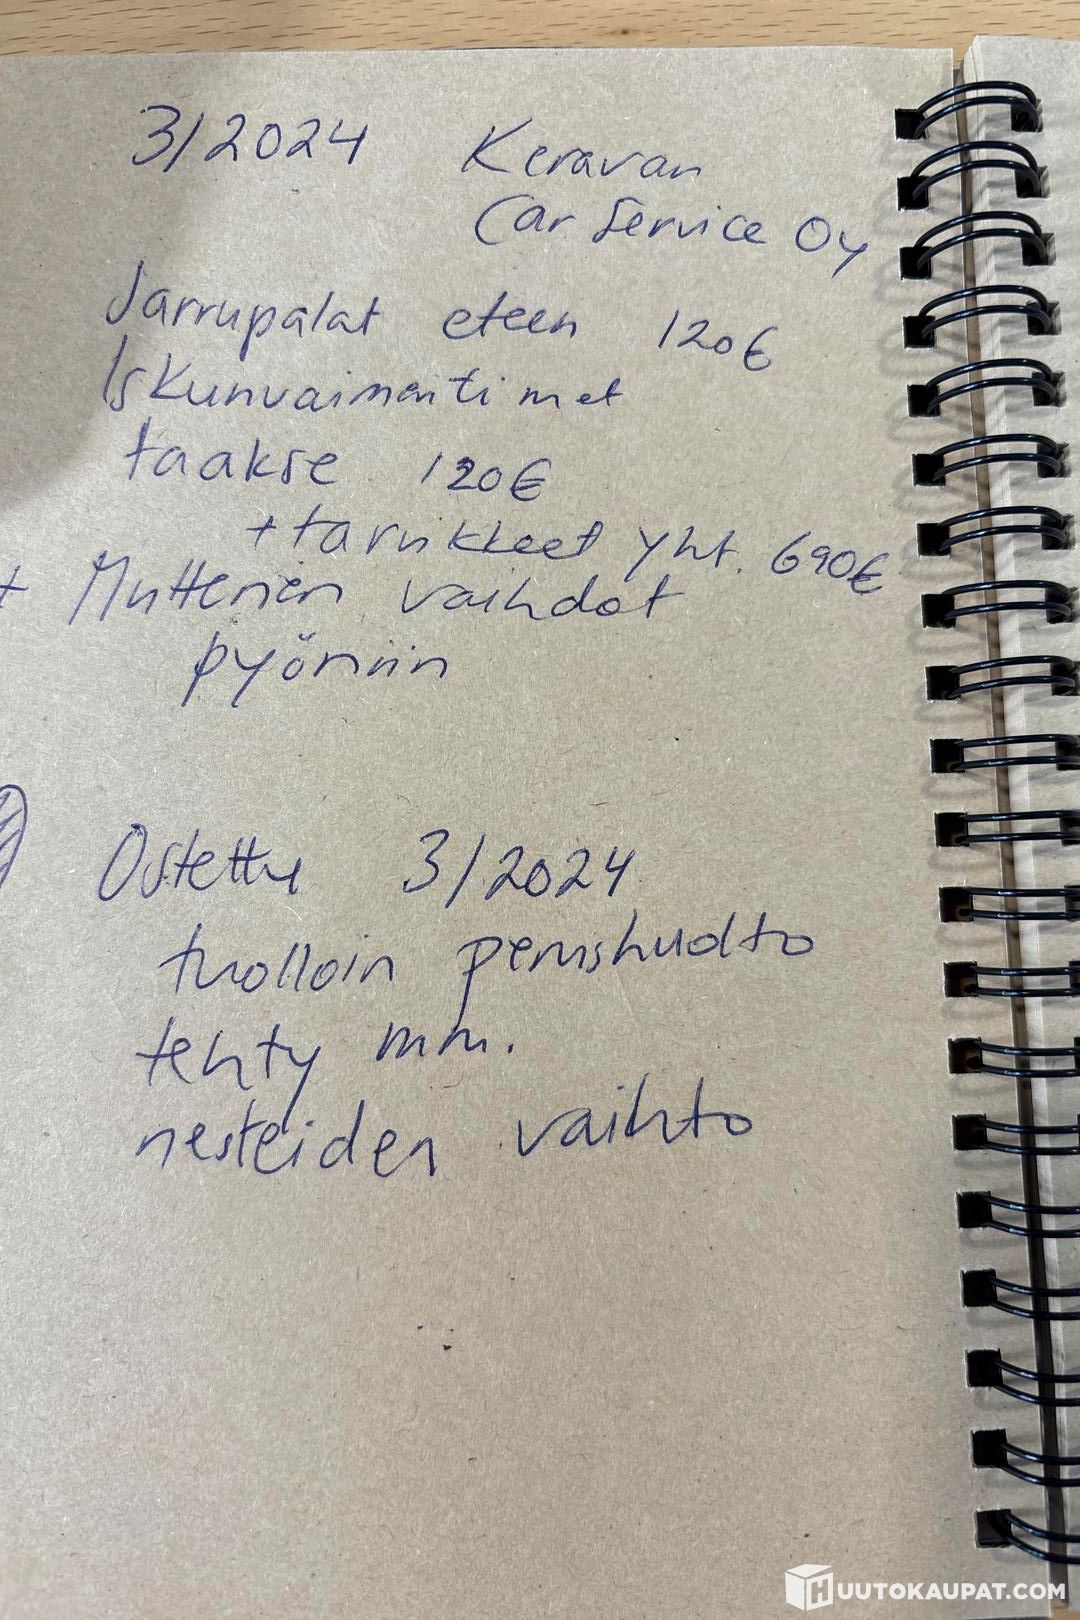 3/2024 Keravan
Car Service Oy
Jarrupalat eteen 120€
Iskunvaimentimet
taakse 120€
+ tarvikkeet yht. 690€
+ Mutterien vaihdot
pyöriin
Ostettu 3/2024
tuolloin perushuolto
tehty mm.
nesteiden vaihto
HUUTOKAUPAT.COM